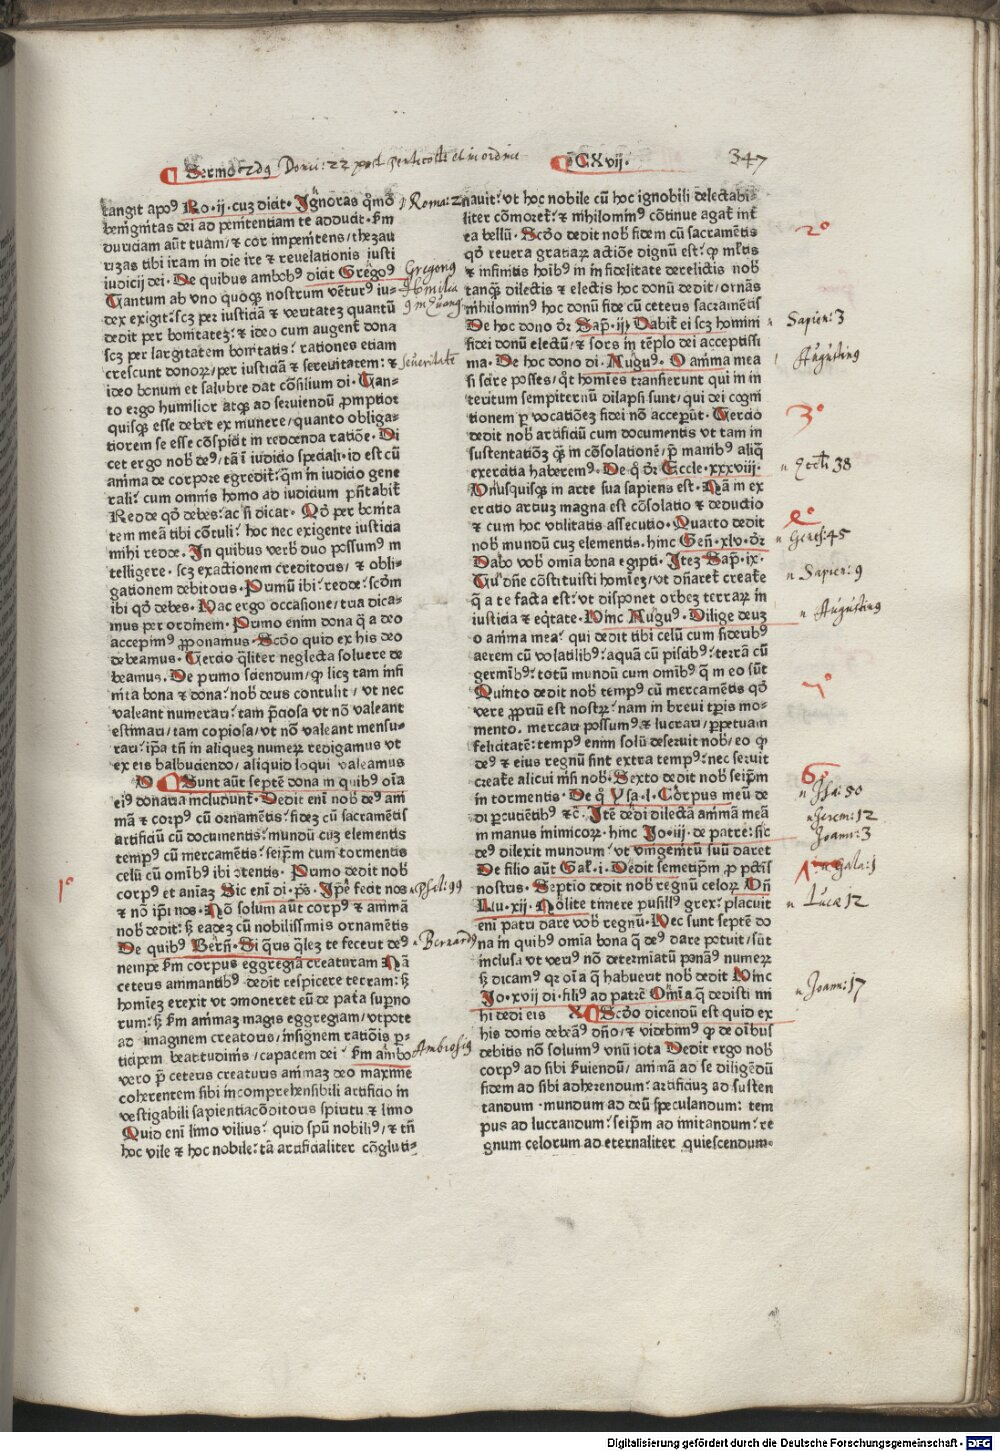 Sermo 2dꝰ Domi: 22 post pentecoste et in ordine CXvij. 347
tangit apoꝰ Ro. ij. cuz dicit. Ignoras qm̄o
benignitas dei ad penitentiam te adducit. sm
duriciam aūt tuam/ ⁊ cor impenitens/ thezau
rizas tibi iram in die ire ⁊ reuelationis iusti
iudicij dei. De quibus ambobꝰ dicit Gregoꝰ
Tantum ab vno quoqꝫ nostrum vētur iu-
dex exigit: scꝫ per iusticiā ⁊ veritatez quantū
dedit per bonitatez: ⁊ ideo cum augent dona
scꝫ per largitatem bonitatis: rationes etiam
crescunt donoꝝ/ per iusticiā ⁊ sereuitatem: ⁊
ideo bonum et salubre dat cōsilium di. Tan-
to ergo humilior atqꝫ ad seruiendū promptior
quisqꝫ esse debet ex munere/ quanto obliga-
tiorem se esse cōspicit in reddenda ratiōe. Di
cet ergo nobꝭ deꝰ/ tā ī iudicio speciali. id est cū
anima de corpore egredit: qm̄ in iudicio gene
rali: cum omnis homo ad iudicium pn̄tabit
Redde qd̄ debes: ac si dicat. Qd̄ per bonita
tem meā tibi cōtuli: hoc nec exigente iusticia
mihi redde. In quibus verbꝭ duo possumꝰ in
telligere. scꝫ exactionem creditoris/ ⁊ obli-
gationem debitoris. Primū ibi: redde: scd̄m
ibi qd̄ debes. Hac ergo occasione/ tria dica-
mus per ordinem. Primo enim dona q̄ a deo
accepimꝰ proponamus. Scd̄o quid ex his deo
debeamus. Tercio qͥliter neglecta soluere de
beamus. De primo sciendum/ qꝫ licꝫ tam infi
nita bona ⁊ dona: nobꝭ deus contulit/ vt nec
valeant numerari: tam p̄ciosa vt nō valeant
estimari/ tam copiosa/ vt nō valeant mensu-
rari: ip̄a tn̄ in aliquez numerꝝ redigamus vt
ex eis balbuciendo/ aliquid loqui valeamus
D Sunt aūt septē dona in quibꝰ oīa
eiꝰ donaria includunt. Dedit enī nobꝭ deꝰ ani
mā ⁊ corpꝰ cū ornamētis: fidez cū sacramētis
artificiū cū documētis: mundū cuz elementis
tempꝰ cū mercamētis: seip̄m cum tormentis
celū cū omībꝰ ibi ↄtentis. Primo dedit nobꝭ
corpꝰ et aniaꝫ Sic enī di. pꝭ. Ip̄e fecit nos
⁊ nō ip̄i nos. Nō solum aūt corpꝰ ⁊ animā
nobꝭ dedit: sꝫ eadeꝫ cū nobilissimis ornamētis
De quibꝰ Bern̄. Si qͥris qͣlez te fecerit deꝰ
nempe sm corpus eggregiā creaturam Nā
ceteris animantibꝰ dedit respicere terram: sꝫ
homiez erexit vt ↄmoneret eū de patͥa supno
rum: sꝫ sm animaz magis eggregiam/ vtpote
ad imaginem creatoris/ insignem ratiōis p̱-
ticipem beatitudinis/ capacem dei: sm ambo
vero p̄ ceteris creaturis animaz deo maxime
coherentem sibi incomprehensibili artificio in
vestigabili sapientia cōditoris spiritu ⁊ limo
Quid enī limo vilius: quid spū nobiliꝰ/ ⁊ tn̄
hoc vile ⁊ hoc nobile: tā artificialiter cōgluti-
nauit: vt hoc nobile cū hoc ignobili delectabi-
liter cōmoret: ⁊ nihilominꝰ cōtinue agat int
ea bellū. Scd̄o dedit nobꝭ fidem cū sacramētis
qd̄ reuera gratiaꝝ actiōe dignū est: qꝫ mltis
⁊ infinitis hoībꝰ in infidelitate derelictis nobꝭ
tanqꝫ dilectis ⁊ electis hoc donū dedit/ ornās
nihilominꝰ hoc donū fidei cū ceteris sacramētis
De hoc dono dr̄ Sap̄. iij Dabit ei scꝫ homini
fidei donū electū/ ⁊ sors in tēplo dei acceptissi
ma. De hoc dono di. Auguꝰ. O anima mea
si scire posses/ qͦt homies transierunt qui in in
teritum sempiternū dilapsi sunt/ qui dei cogni
tionem p̱ vocatiōeꝫ fidei nō acceperūt. Tercio
dedit nobꝭ artificiū cum documentis vt tam in
sustentatiōꝫ qͣꝫ in cōsolationē/ p̱ manibꝰ aliqͣ
exercitia haberemꝰ. De qͦ dr̄ Eccle. xxxviij.
Vnusquisqꝫ in arte sua sapiens est. Nā in ex
ercitio artiuꝫ magna est cōsolatio ⁊ deductio
⁊ cum hoc vtilitatis assecutio. Quarto dedit
nobꝭ mundū cuz elementis. hinc Gen̄. xlv. dr̄
Dabo vobꝭ omia bona egipti. Iteꝫ Sap̄. ix.
Tu dn̄e cōstituisti homieꝫ/ vt dn̄aret create
q̄ a te facta est: vt disponet orbez terraꝝ in
iusticia ⁊ eqͥtate. Hinc Auguꝰ. Dilige deuꝫ
o anima mea: qui dedit tibi celū cum sideribꝰ
aerem cū volatilibꝰ: aquā cū piscibꝰ: terrā cū
germībꝰ: totū mundū cum omībꝰ q̄ in eo sūt
Quinto dedit nobꝭ tempꝰ cū mercamētis qd̄
vere propriū est nostꝝ: nam in breui tp̄ris mo-
mento. mercari possumꝰ ⁊ lucrari/ perpetuam
felicitatē: tempꝰ enim solū deseruit nobꝭ/ eo qꝫ
deꝰ ⁊ eius regnū sint extra tempꝰ: nec seruit
create alicui nisi nobꝭ. Sexto dedit nobꝭ seip̄m
in tormentis. De qͦ Ysa. l. Corpus meū de
di percutiētibꝰ ⁊c̄. Itē dēdi dilectā animā meā
in manus inimicoꝝ. hinc Jo. iij. de patre: sic
deꝰ dilexit mundum: vt vnigenitū suū daret
De filio aūt Gal̄. i. Dedit semetip̄m pro pctīs
nostris. Septīo dedit nobꝭ regnū celoꝝ Vn̄
Lu. xij. Nolite timere pusillꝰ grex: placuit
enī patri dare vobꝭ regnū. Nec sunt septē do
na in quibꝰ omia bona q̄ deꝰ dare potuit/ sūt
inclusa vt verꝰ nō determiatū ponāꝰ numeꝝ
sꝫ dicamꝰ qꝛ oīa q̄ habuerit nobꝭ dedit Hinc
Jo. xvij di. filiꝰ ad patrē Omīa q̄ dedisti mi
hi dedi eis X Scd̄o dicendū est quid ex
his donis debeāꝰ dn̄o/ ⁊ videbimꝰ qꝫ de oībus
debitis nō soluimꝰ vnū iota Dedit ergo nobꝭ
corpꝰ ad sibi seruiendū/ animā ad se diligēdū
fidem ad sibi adherendum: artificiuz ad susten
tandum. mundum ad deū speculandum: tem
pus ad lucrandum: seip̄m ad imitandum: re
gnum celorum ad eternaliter quiescendum.
Roma: 2
Gregoriꝰ
Homilia
9 in Euang
seueritatē
1º
Psal: 99
Bernardꝰ
Ambrosiꝰ
2º
Sapien: 3
Augustinꝰ
3º
Eccli 38
Genes: 45
Sapien: 9
Augustinꝰ
6
Isai 50
Jerem: 12
Joann: 3
Gala: 1
Lucæ 12
Joann: 17
Digitalisierung gefördert durch die Deutsche Forschungsgemeinschaft - DFG